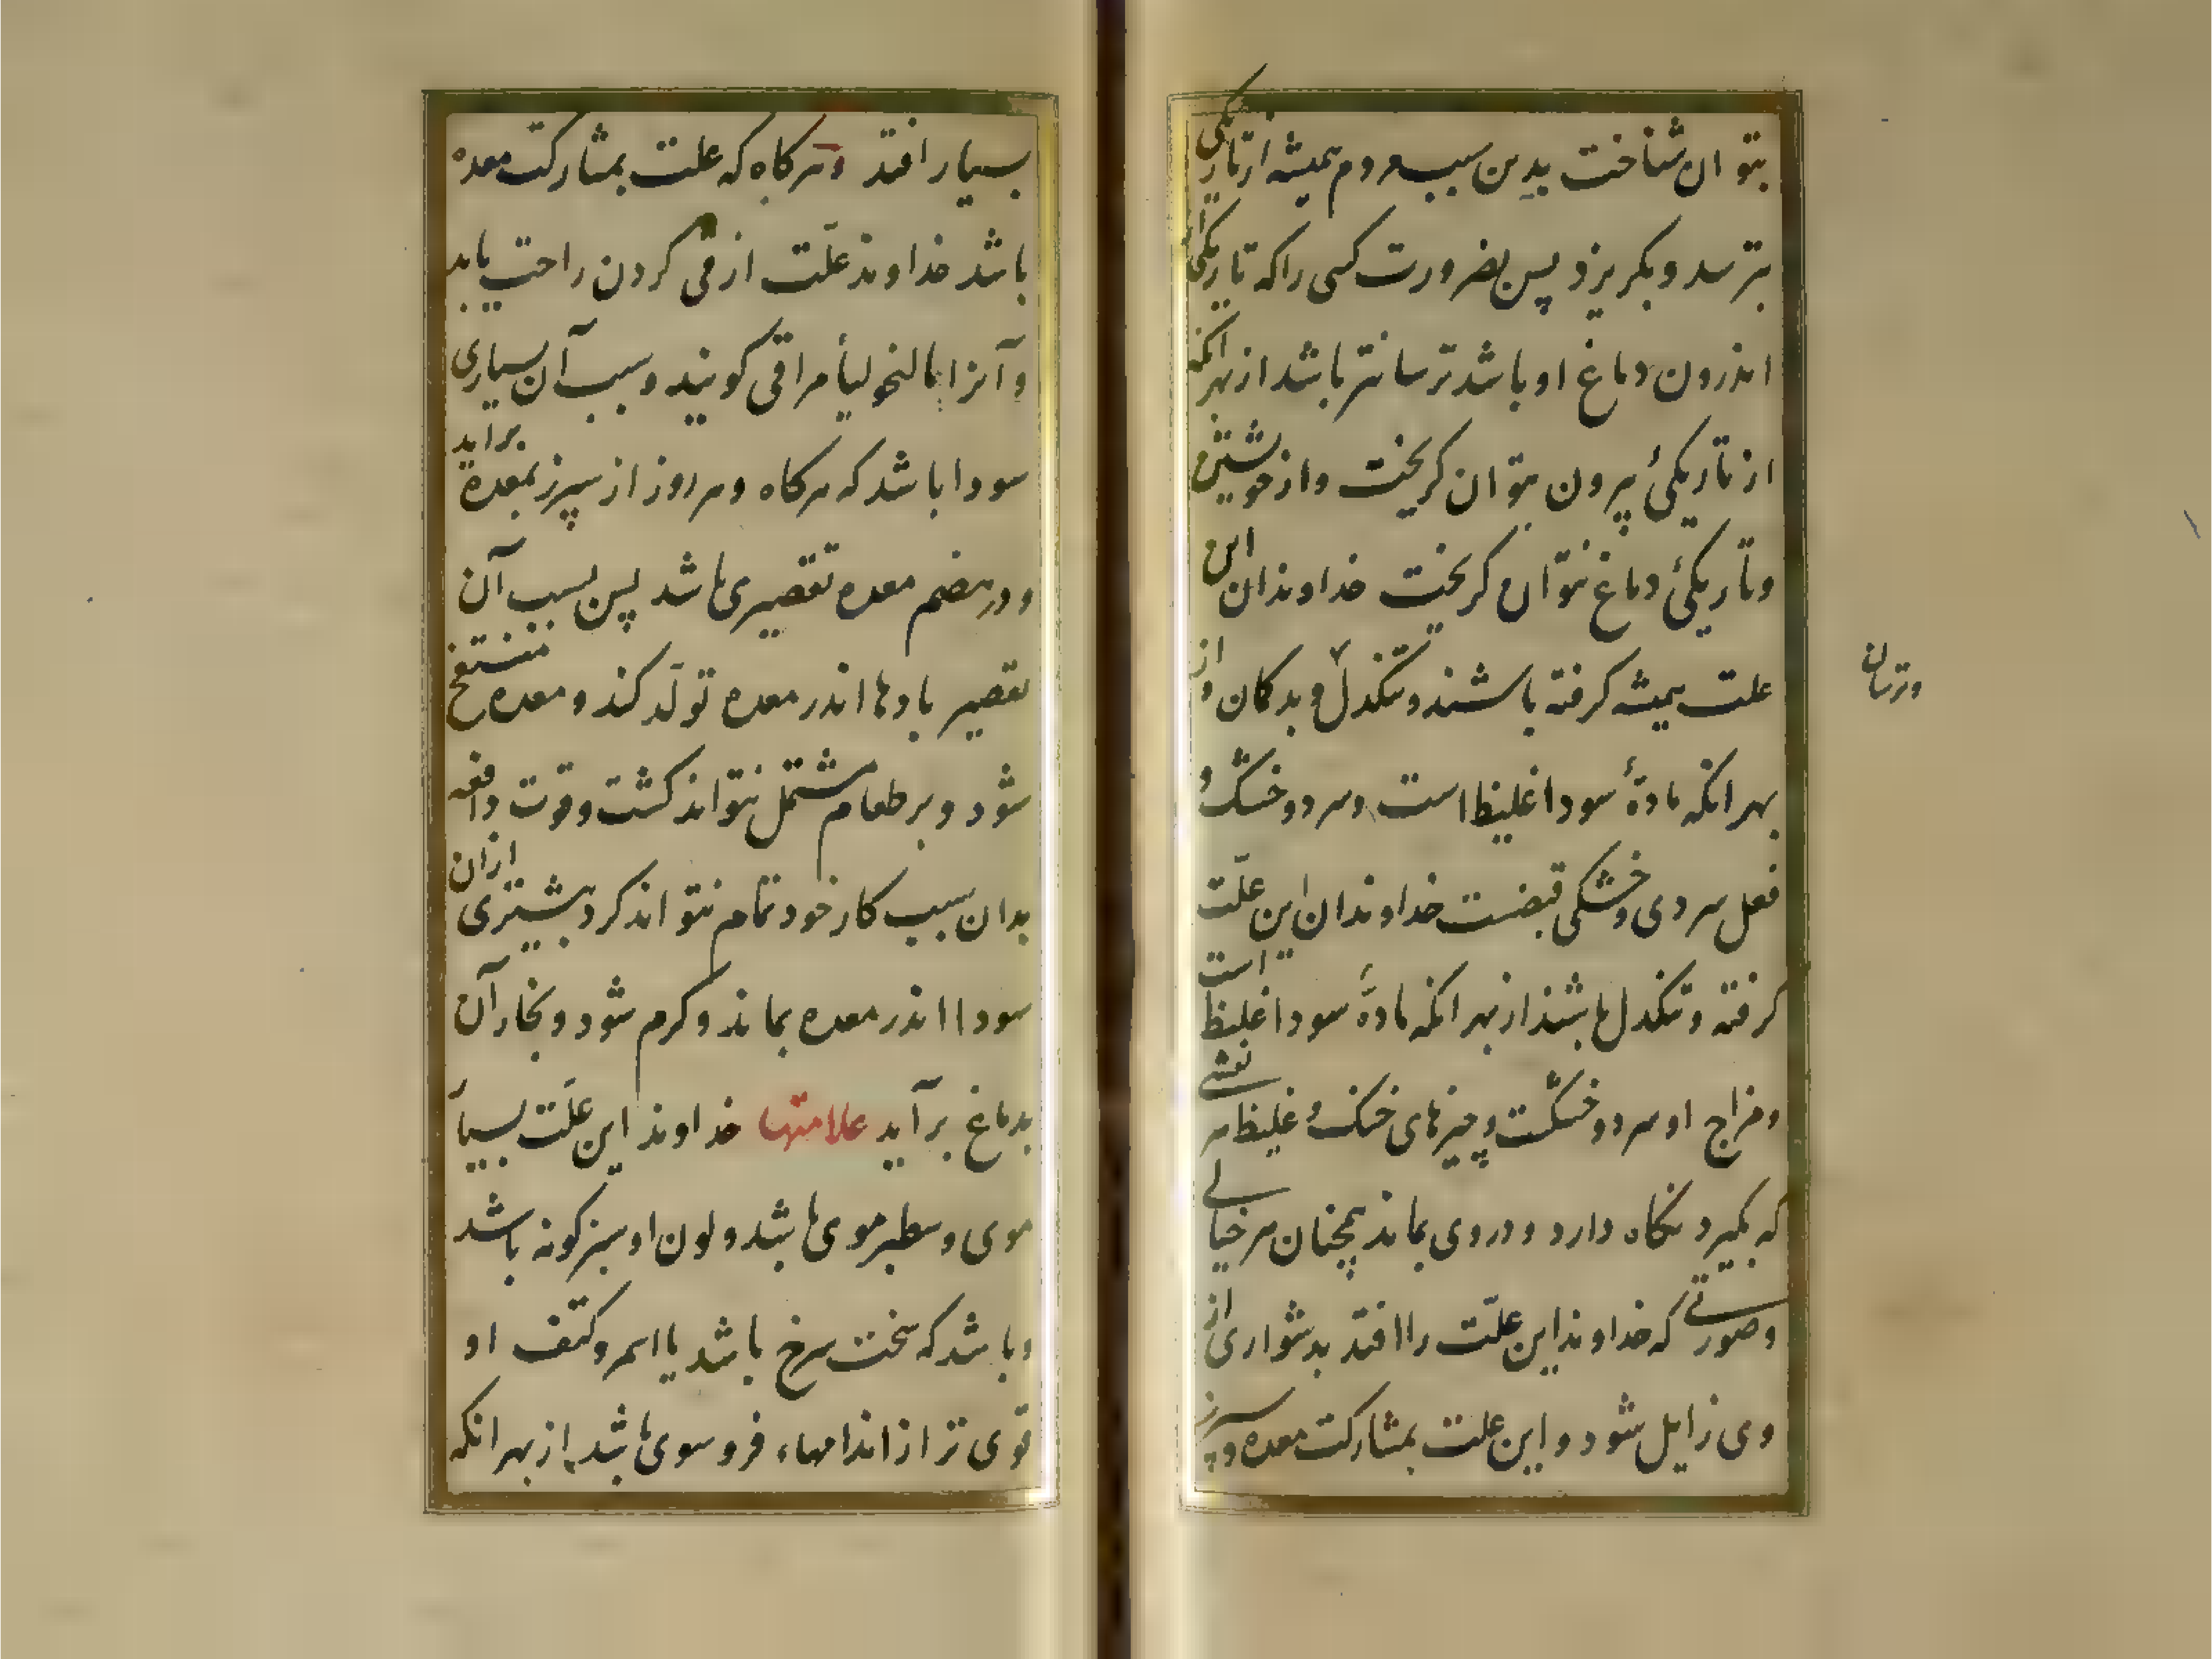 بتوان شناخت بدین سبب مردم همیشه از تاریکی
بترسد و بکریزد پس بضرورت کسی را که تاریکی
اندرون دماغ او باشد ترسانتر باشد از بهر انکه
از تاریکیٔ بیرون بتوان کریخت و از خویشتن
و تاریکیٔ دماغ نتوان کریخت خداوندان این
علت همیشه کرفته باشند و تنکدل و بدکمان از
وترسان
بهر انکه مادهٔ سودا غلیظ است و سرد و خشک و
فعل سردی و خشکی قبضست خداوندان این علّت
کرفته و تنکدل باشند از بهر انکه مادهٔ سودا غلیظ است
و مزاج او سرد و خشکست و چیزهای خشک و غلیظ هر نقشی
که بکیرد نکاه دارد و در وی بماند همچنان هر خیالی
و صورتی که خداوند این علّت را افتد بدشواری از
وی زایل شود و این علت بمشارکت معده و سپرز
بسیار افتد و هرکاه که علت بمشارکت معده
باشد خداوند علّت از قی کردن راحت یابد
و آنرا مالنخولیا مراقی کویند و سبب آن بسیاری
سودا باشد که هرکاه و هر روز از سپرز بمعده برآید
و در هضم معده تقصیری باشد پس بسبب آن
تقصیر بادها اندر معده تولّد کند و معده منتفخ
شود و بر طعام مشتمل نتواند کشت و قوت دافعه
بدان سبب کار خود تمام نتواند کرد بیشتری ازان
سودا اندر معده بماند و کرم شود و بخار آن
بدماغ برآید علامتها خداوند این علّت بسیار
موی و سطبر موی باشد و لون او سبز کونه باشد
و باشد که سخت سرخ باشد یا اسمر و کتف او
قوی تر از اندامهاء فروسوی باشد از بهر انکه